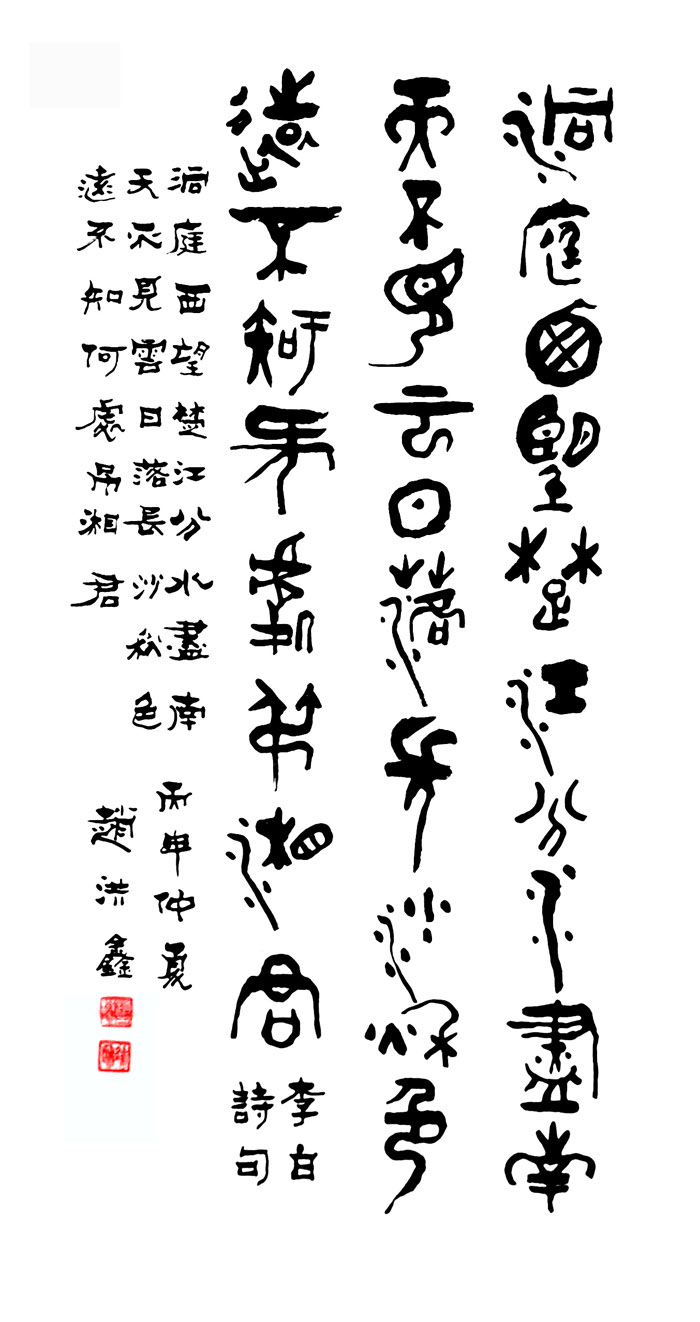 洞庭西望楚江分水盡南
天不見云日落長沙秋色
遠不知何處弔湘君
李白
詩句
洞庭西望楚江分水盡南
天不見雲日落長沙秋色
遠不知何處弔湘君
丙申仲夏
趙洪鑫